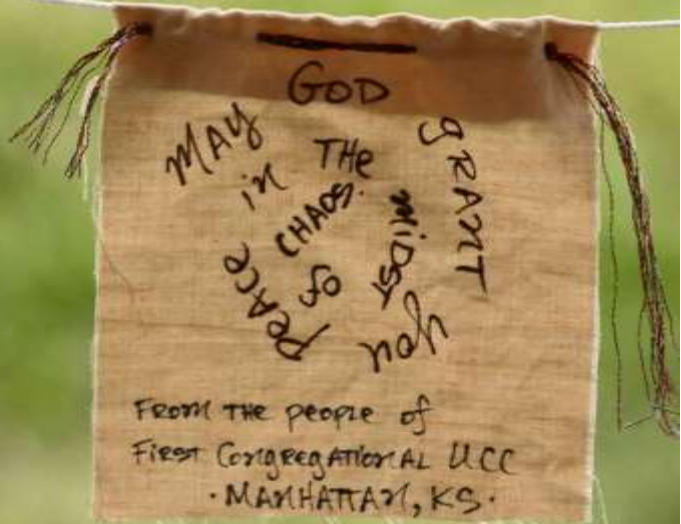 MAY GOD gRANT you peace in THe miDST of CHAOS.
FROM THE people of
FIRST CONgRegATIONAL UCC
· MANHATTAN, KS ·